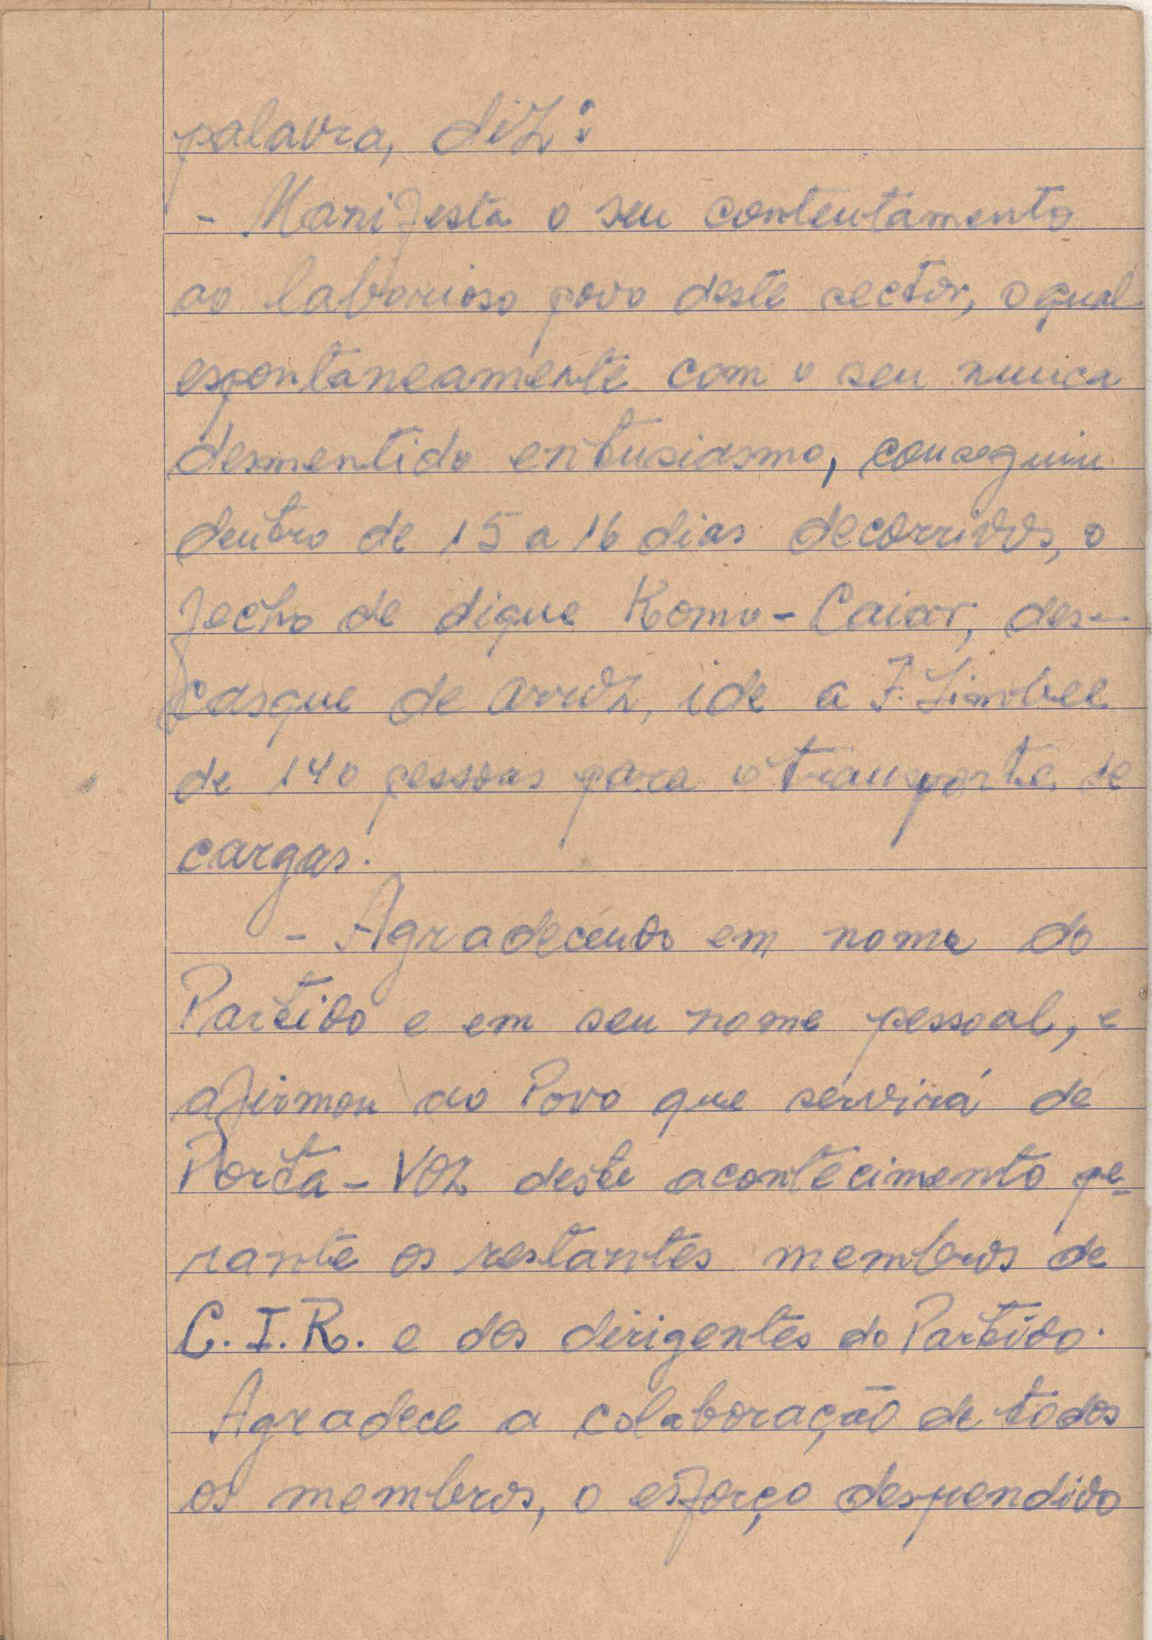 palavra, diz:
- Manifesta o seu contentamento
ao laborioso povo deste sector, o qual
espontaneamente com o seu nunca
desmentido entusiasmo, conseguiu
dentro de 15 a 16 dias decorridos, o
fecho de dique Komo-Caiar, des-
casque de arroz, ide a F. Simbel
de 140 pessoas para o transporte de
cargas.
- Agradecendo em nome do
Partido e em seu nome pessoal, e
afirmou ao Povo que servirá de
Porta-Voz deste acontecimento pe-
rante os restantes membros de
C.I.R. e dos dirigentes do Partido.
Agradece a colaboração de todos
os membros, o esforço despendido